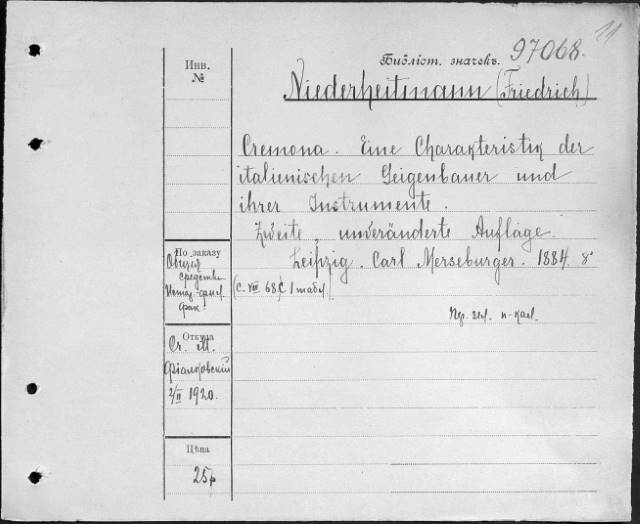 11
Библіот. значекъ. 97068.
Инв.
№
Niederheitmann (Friedrich)
Cremona. Eine Charakteristik der
italienischen Geigenbauer und
ihrer Instrumente.
Zweite, unveränderte Auflage.
Leipzig. Carl Merseburger. 1884. 8°
По заказу
средства
фак.
(с. VIII 68 с. 1 табл.
Откуда
Ст. М.
Фіалковскій
2/II 1920.
Цѣна
25р